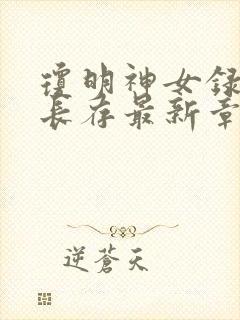 瓊明神女録
長存最新章
逆蒼天